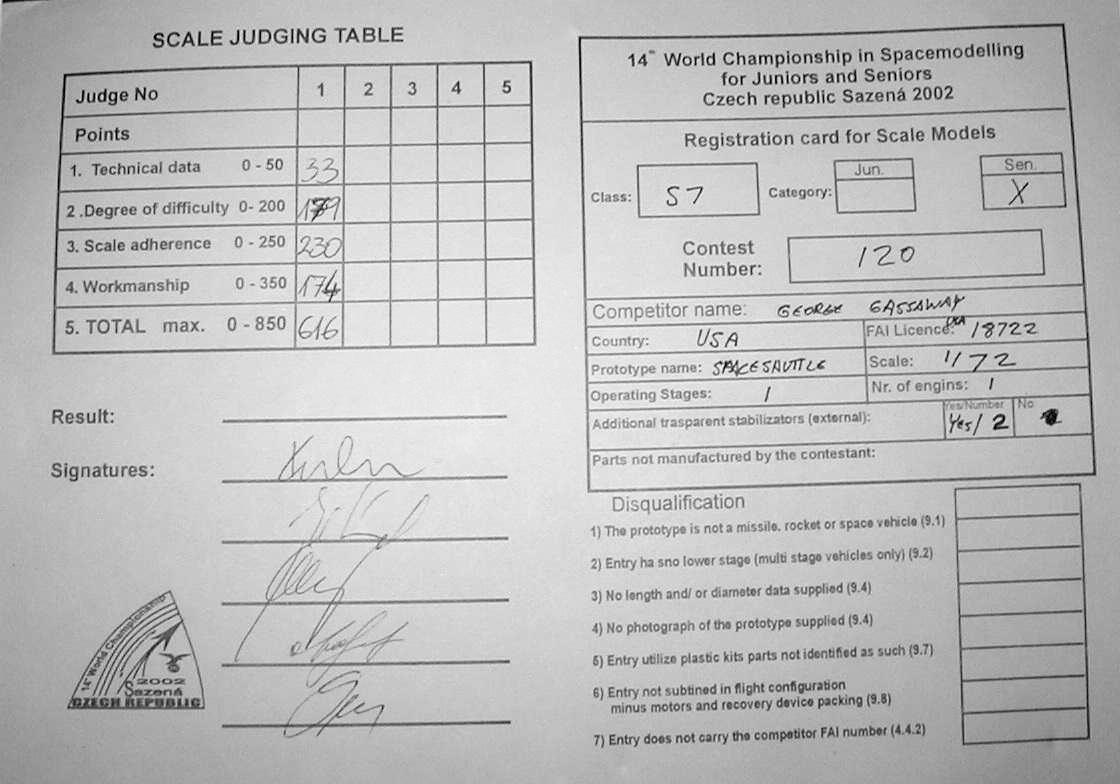 SCALE JUDGING TABLE
Judge No 1 2 3 4 5
Points
1. Technical data 0 - 50 33
2 .Degree of difficulty 0- 200 179
3. Scale adherence 0 - 250 230
4. Workmanship 0 - 350 174
5. TOTAL max. 0 - 850 616
Result:
Signatures:
14th World Championship
2002
Sazená
CZECH REPUBLIC
14th World Championship in Spacemodelling
for Juniors and Seniors
Czech republic Sazená 2002
Registration card for Scale Models
Class: S7 Category: Jun. Sen. X
Contest
Number: 120
Competitor name: GEORGE GASSAWAY
Country: USA FAI Licence: USA 18722
Prototype name: SPACE SAUTTLE Scale: 1/72
Operating Stages: 1 Nr. of engins: 1
Additional trasparent stabilizators (external): Yes/Number Yes/ 2 No
Parts not manufactured by the contestant:
Disqualification
1) The prototype is not a missile. rocket or space vehicle (9.1)
2) Entry ha sno lower stage (multi stage vehicles only) (9.2)
3) No length and/ or diameter data supplied (9.4)
4) No photograph of the prototype supplied (9.4)
5) Entry utilize plastic kits parts not identified as such (9.7)
6) Entry not subtined in flight configuration
minus motors and recovery device packing (9.8)
7) Entry does not carry the competitor FAI number (4.4.2)